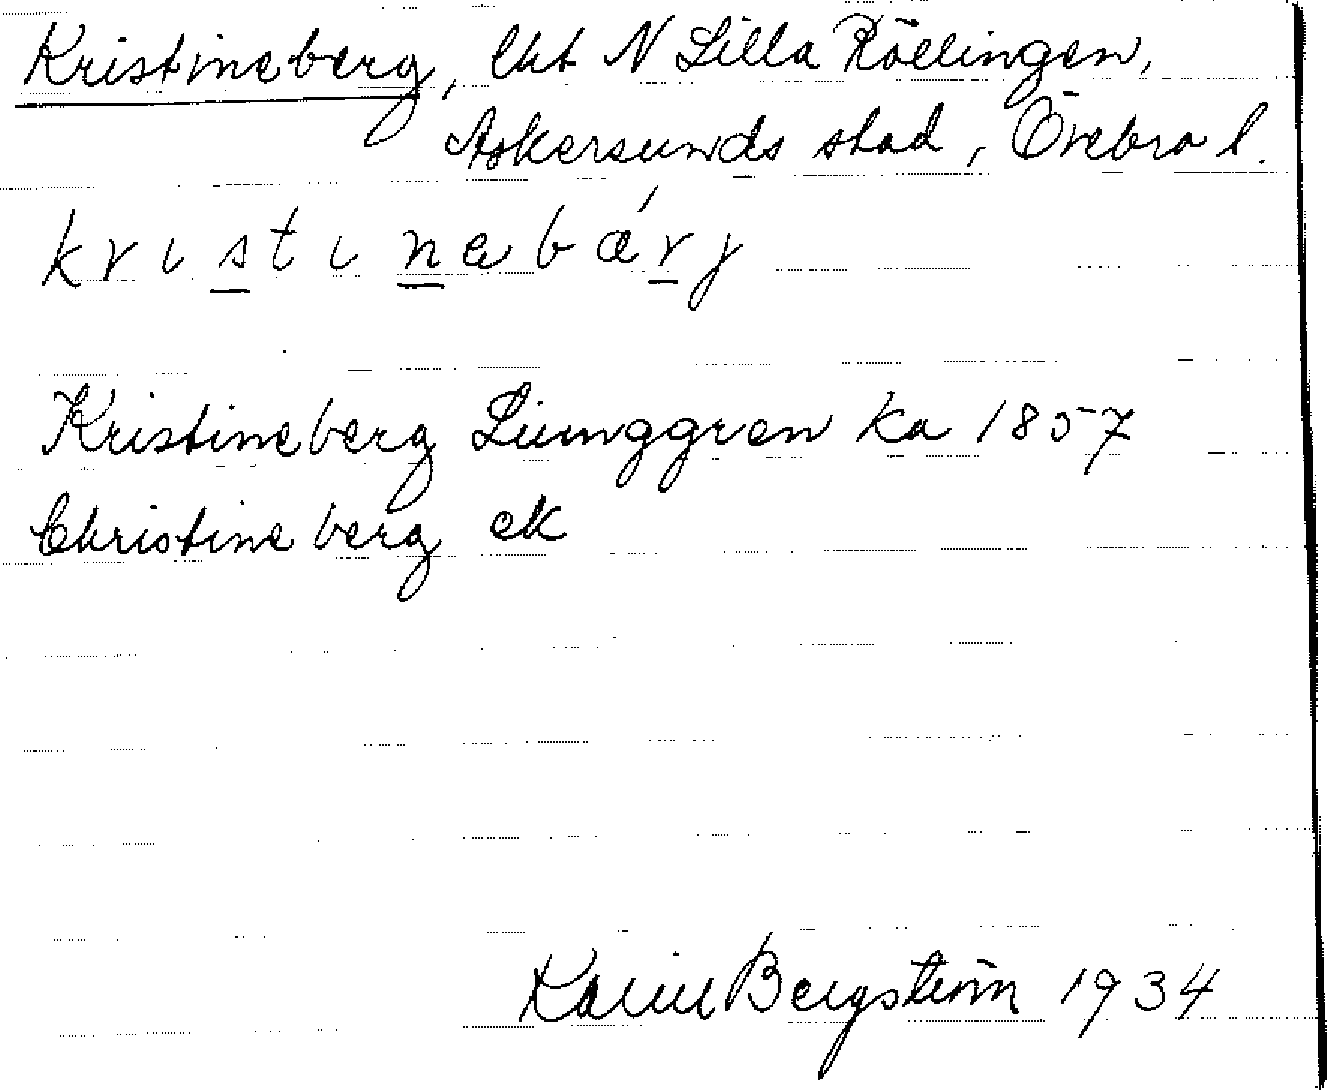 Kristineberg, lht N Lilla Röelingen,
Askersunds stad, Örebro l.
kristinebärj
Kristineberg Liunggren ka 1857
Christineberg ek
Karin Bergström 1934